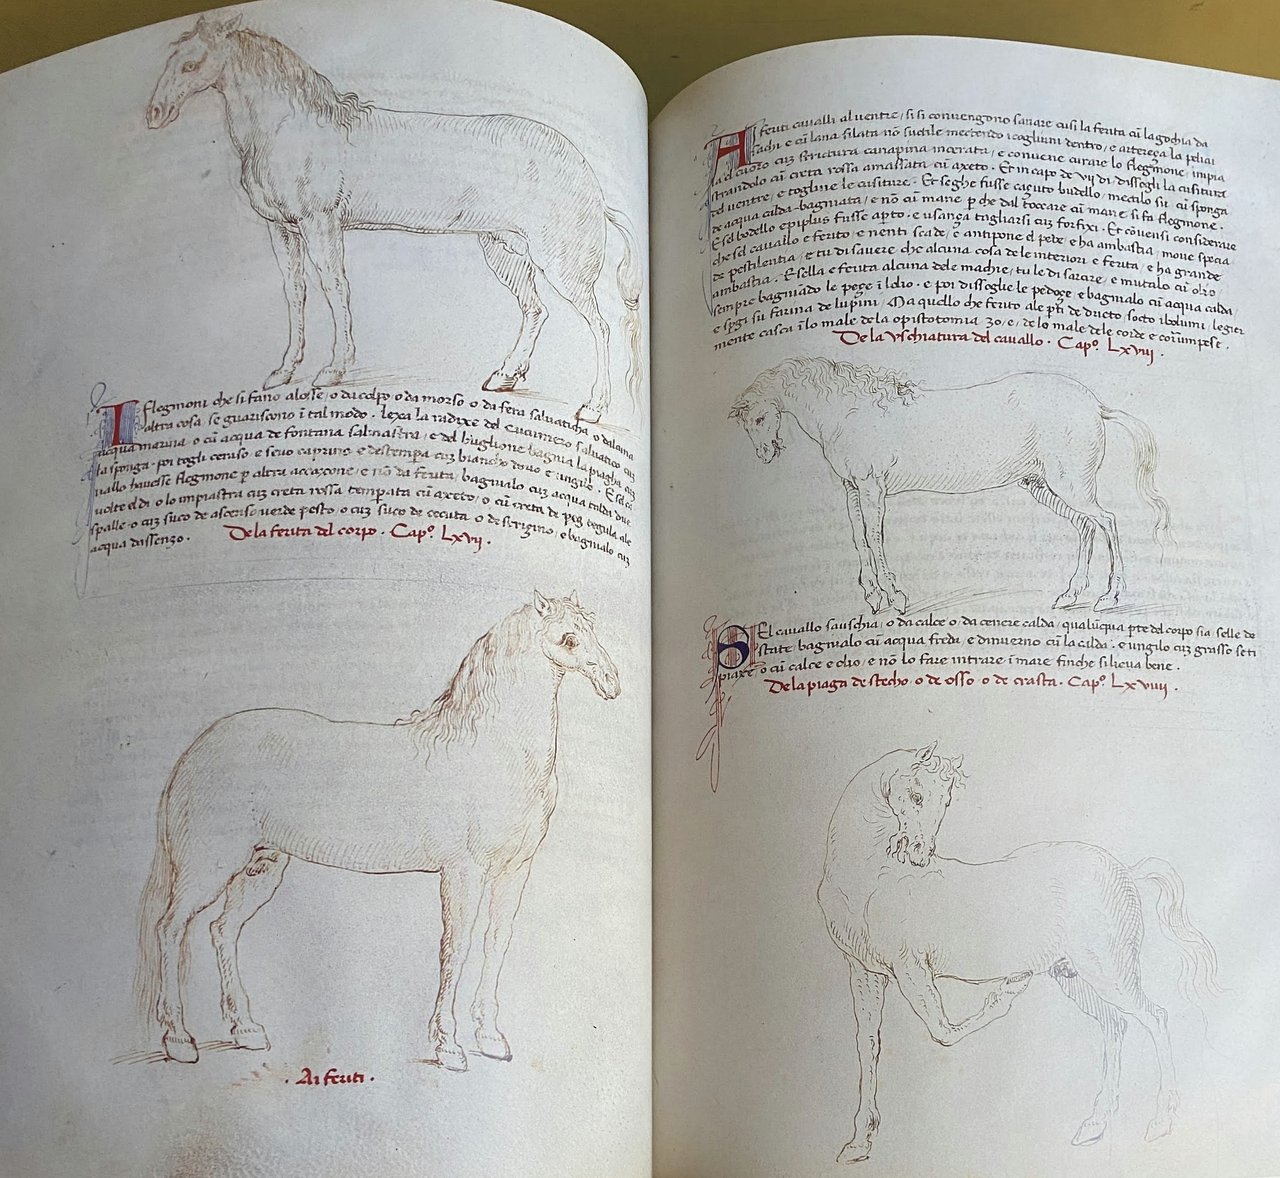 I Flegmoni che si fano alosse / o da colpo / o da morso / o da fera salvaticha / o dalcuna
altra cosa / se guariscono ī tal modo . lexa la radixe del cucumero salvatico cuȝ
acqua marina / o cū acqua de fontana salmastra / e del buglione bagnia la piagha cuȝ
la spōga . poi togli ceruso / e sevo caprino / e destempa cuȝ biancho dovo / e ungile . E sel ca
vallo havesse flegmone ꝑ altra accaxone / e nō da feruta / bagnialo cuȝ acqua calda due
volte el di / o lo impiastra cuȝ creta rossa temperata cū axeto / o cū creta de
spalle / o cuȝ suco de verde pesto / o cuȝ suco de cecuta / o de / e bagnialo cuȝ
acqua dassenzo .
De la feruta del corpo . Capᵒ. Lxvij .
. Ai feruti .
A feruti cavalli al ventre / si si convengono sanare cusi la feruta cū
e cū lana silata nō suttile mectendo i coglium dentro / e la pelicu
la el cuoro cuȝ strictura canapina incerata / e conviene curare lo flegmone / impia
strandolo cū creta rossa amassata cū axeto . Et in capo de vij di / dissogli la cusitura
del ventre / e togline le cusiture . Et seghe fusse caçuto budello / metilo su cū sponga
de acqua calda bagniata / e nō cū mane ꝑ che dal toccare cū mane si fa flegmone .
E sel bodello epiplus fusse apto / e usança tagliarsi cuȝ forfixi . Et cōvensi considerare
che sel cavallo e ferito / e nenti scade / e antipone el pete / e ha ambastia / move specia
de pestilentia / e tu di savere che alcuna cosa de le interiori e feruta / e ha grande
ambastia . E sella e feruta alcuna dele machie / tu le di sarare / e mutalo cū olio
sempre bagniādo le peçe ī lolio . e poi dissoglie le pedoçe / e bagnialo cū acqua calda /
e sꝑgi su farina de lupini / Ma quello che ferito ale ꝑti de dricto / socto ibolumi / legier
mente casca ī lo male de la opistotomia 30 / e / de lo male dele corde e corumpese .
De la Vschiatura del cavallo . Capᵒ. Lxviij .
S El cavallo sauschia / o da calce / o da cenere calda / qualūcqua ꝑte del corpo sia / selle de
state / bagnialo cū acqua freda / e dinverno cū la cilda . e ungilo cuȝ grasso se ti
piaxe / o cū calce e olio / e nō lo fare intrare ī mare finche si lieva bene .
De la piaga de stecho / o de osso / o de crasta . Capᵒ. Lxviiij .